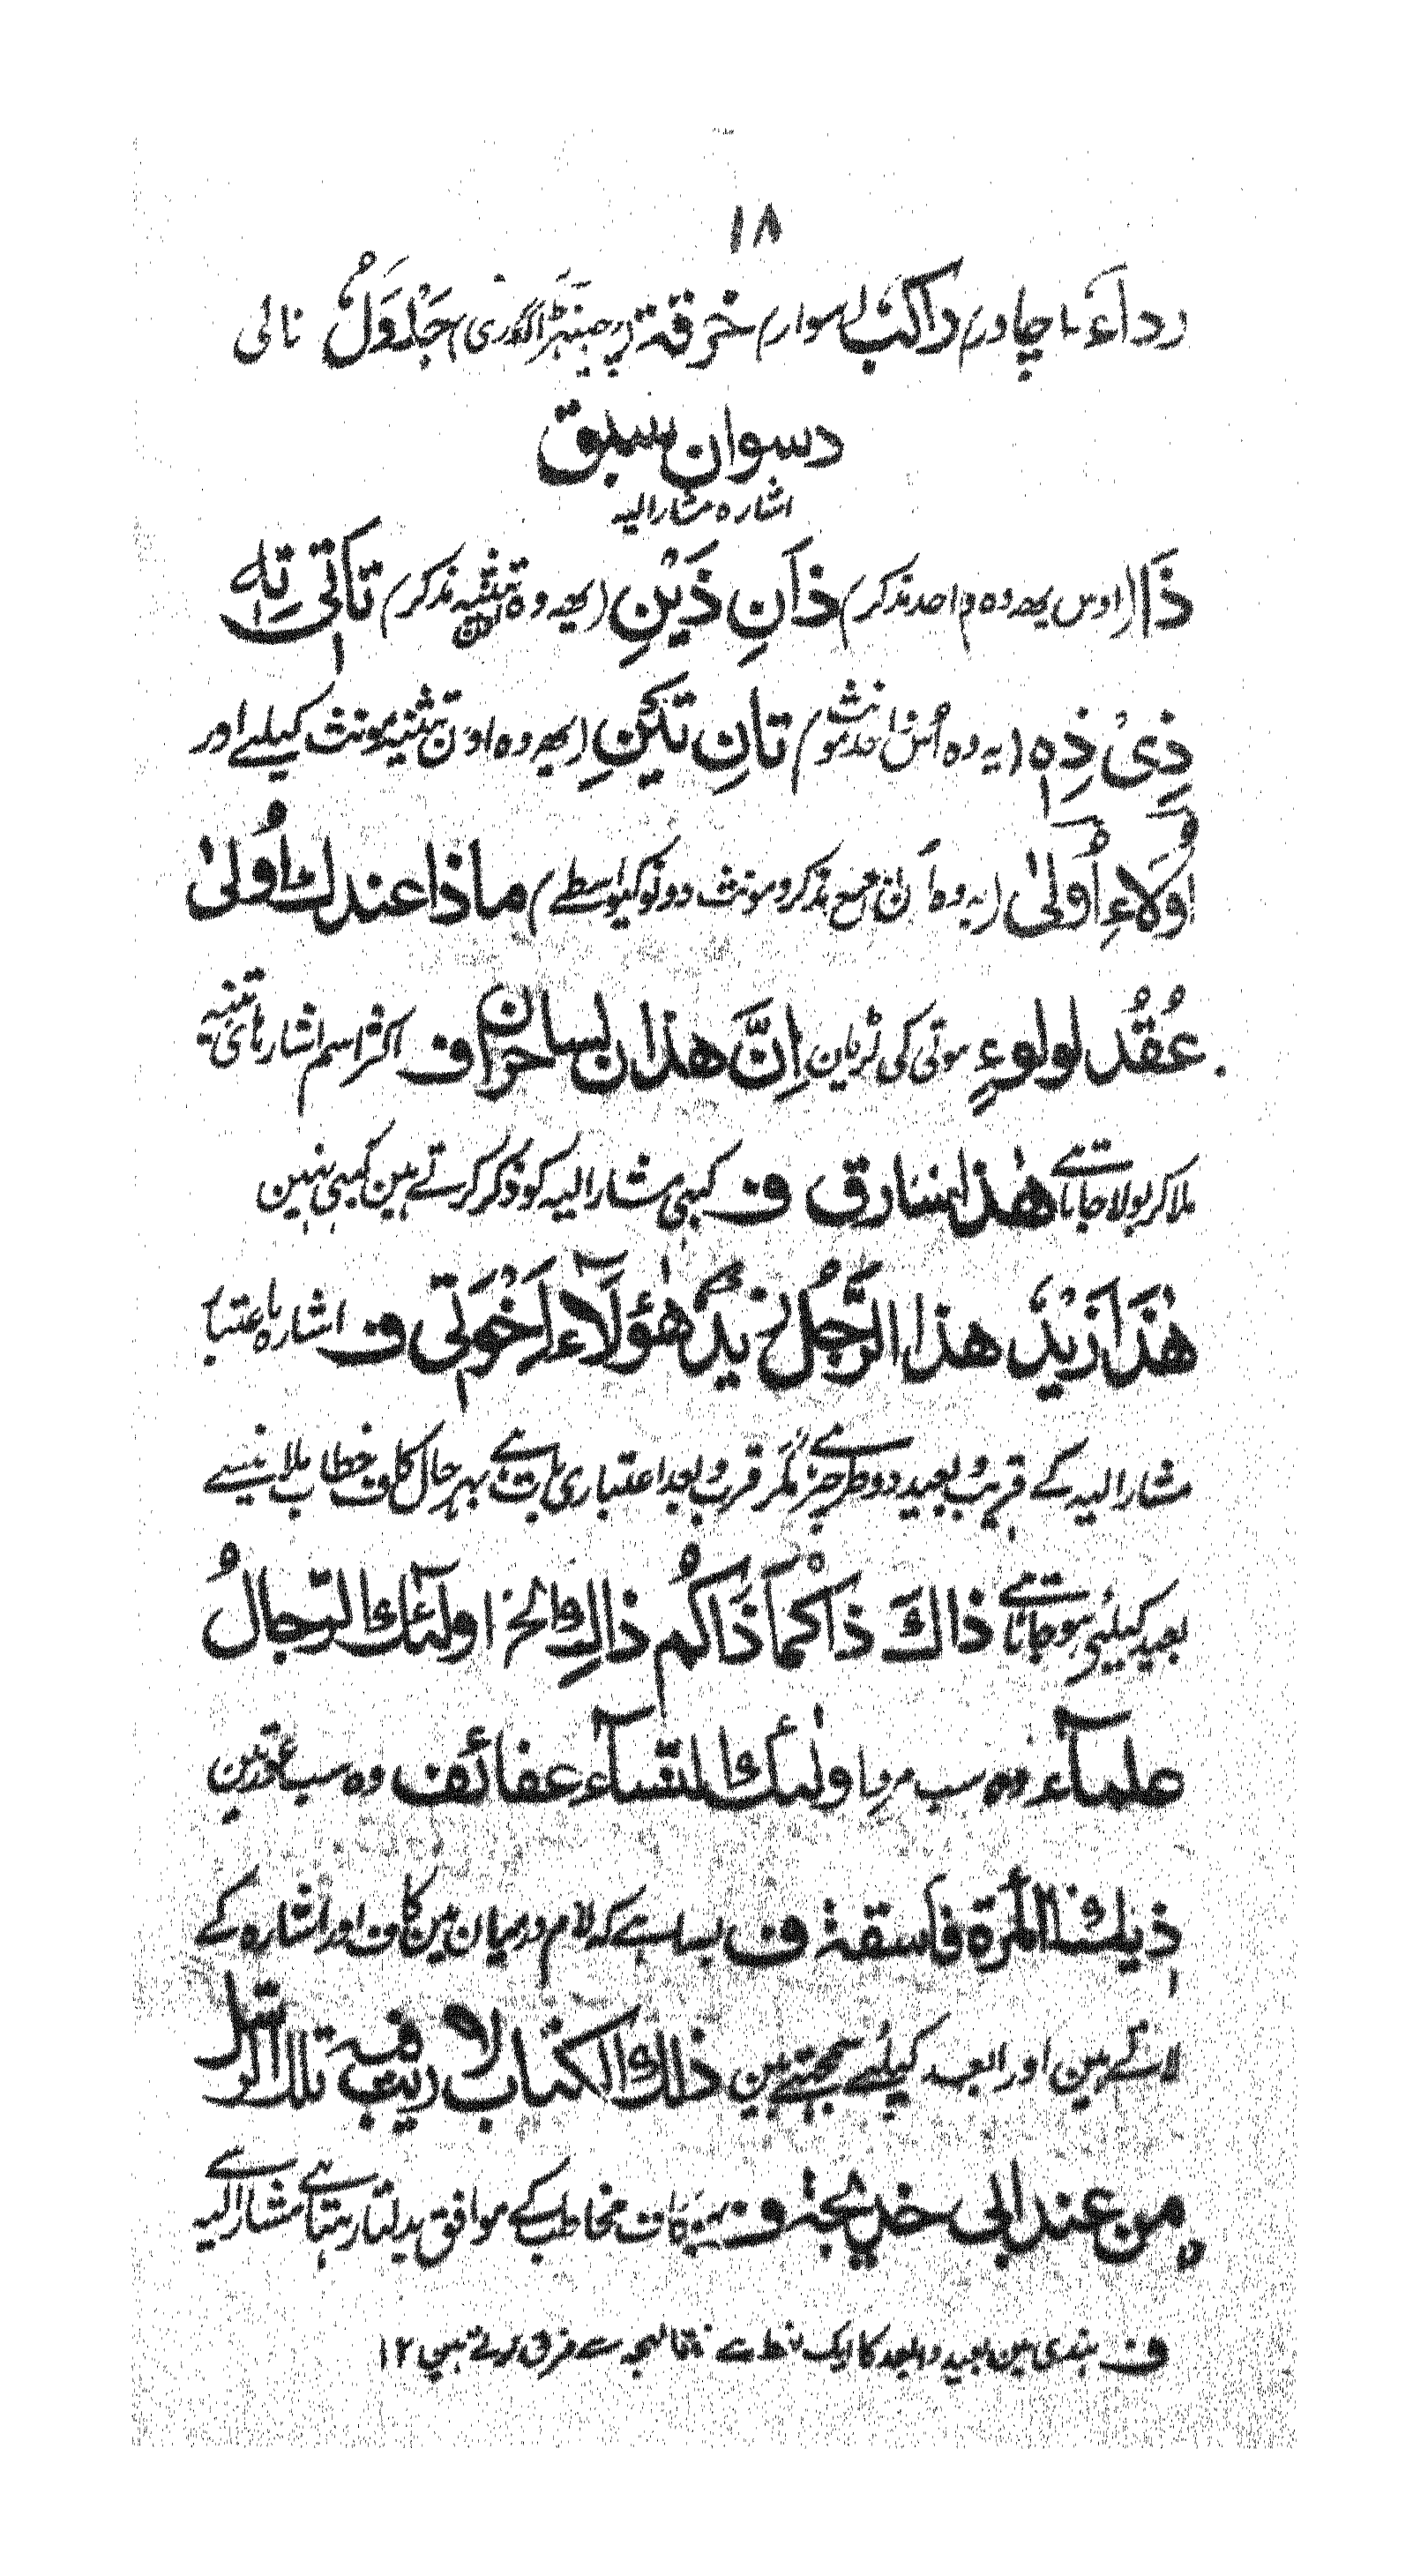 ۱۸
رداءَ (چادر) راکبٌ (سوار) خرقة (چیتھڑا گوڈری) جَدْوَلٌ نالی
دسوان سبق
اشارہ مشارالیہ
ذَا (اوس یہہ وہ واحد مذکر) ذَانِ ذَیْنِ (یہہ وہ اون تثنیہ مذکر) تا تی تِہ
ذِیْ ذِہ (یہ وہ اُس واحد مونث) تانِ تَیْنِ (یہہ وہ اون تثنیہ مونث کیلئے اور
اُولَاءِ اُولیٰ (یہ وہ اُن جمع مذکر و مونث دونو کیواسطے) ماذا عندك اُولیٰ
عُقُدُ لولوءٍ موتی کی لڑیان اِنَّ هذان لساحران ف اکثر اسم اشارہ ہای تنبیہ
ملا کر بولا جاتا ہے هٰذا سارق ف کبہی مشارالیہ کو ذکر کرتے ہین کبہی نہین
هٰذَا زَیْدٌ هذا الرَّجُلُ زیدٌ هٰؤلَآءِ اَخْوَتی ف اشارہ باعتبار
مشارالیہ کے قریب و بعید دو طرح پر ہے مگر قرب و بعد اعتباری بات ہے بہر حال کاف خطاب ملا نیسے
بعید کیلئی ہوجاتا ہے ذاكَ ذاکُمَا ذَاکُم ذالِك الخ اولٓئك الرجالُ
علمآء وہ سب مرد اولٰئك النسآء عفائف وہ سب عورتین
ذیك المرۃ فاسقۃ ف لام درمیان مین کاف اور اشارہ کے
لاتے ہین اور ابعد کیلئے سمجہتے ہین ذالك الکتاب لا ریب فیه تلك الرسل
من عند ابی خدیجۃ ف یہ کاف مخاطب کے موافق بدلتا رہتا ہے مشارالیہ
ف ہندی مین بعید و ابعد کا ایک لفظ ہے فقط لہجہ سے فرق کرتے ہین ۱۲